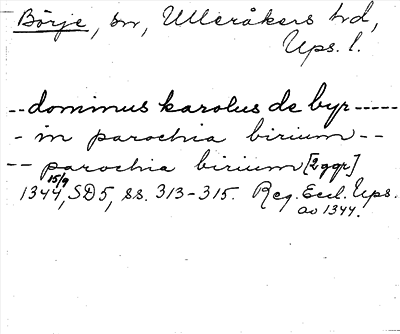 Börje, sn, Ulleråkers hd,
Ups. l.
-- dominus karolus de byr -----
- in parochia birium --
-- parochia birium [2 ggr]
1344 15/9, SD 5, ss. 313-315. Reg. Eccl. Ups.
ao 1344.